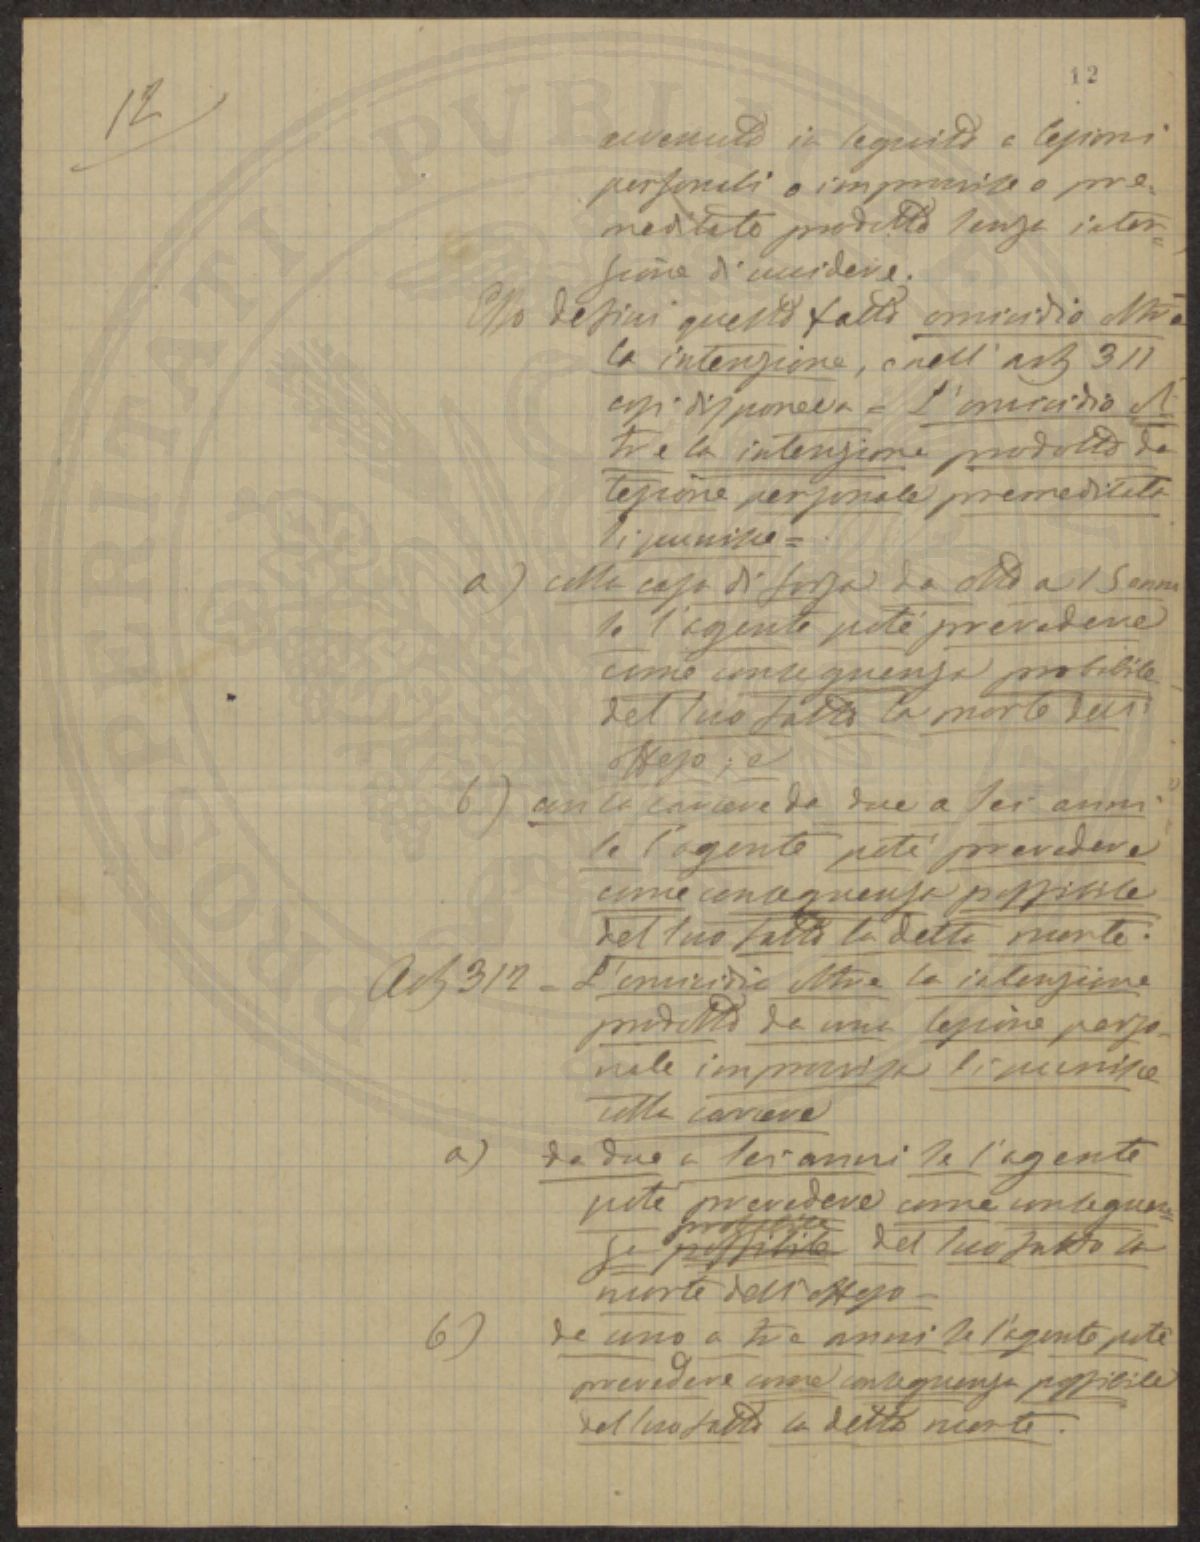 12
12
avvenuto in seguito a lesioni
personali o improvvise o pre-
meditate prodotto senza inten-
zione di uccidere.
Esso definì questo fatto omicidio oltre
la intenzione, e nell'art 311
così disponeva = L'omicidio ol-
tre la intenzione prodotto da
lesione personale premeditata
si punisce =
a) colla casa di forza da otto a 15 anni
se l'agente poté prevedere
come conseguenza probabile
del suo fatto la morte dell'
offeso; e
b) con la carcere da due a sei anni
se l'agente poté prevedere
come conseguenza possibile
del suo fatto la detta morte.
Art 312 = L'omicidio oltre la intenzione
prodotto da una lesione perso-
nale improvvisa si punisce
colla carcere
a) da due a sei anni se l'agente
poté prevedere come conseguen-
probabile
za possibile del suo fatto la
morte dell'offeso =
b) da uno a tre anni se l'agente poté
prevedere come conseguenza possibile
del suo fatto la detta morte.
PROSPERITATI PUBLICAE